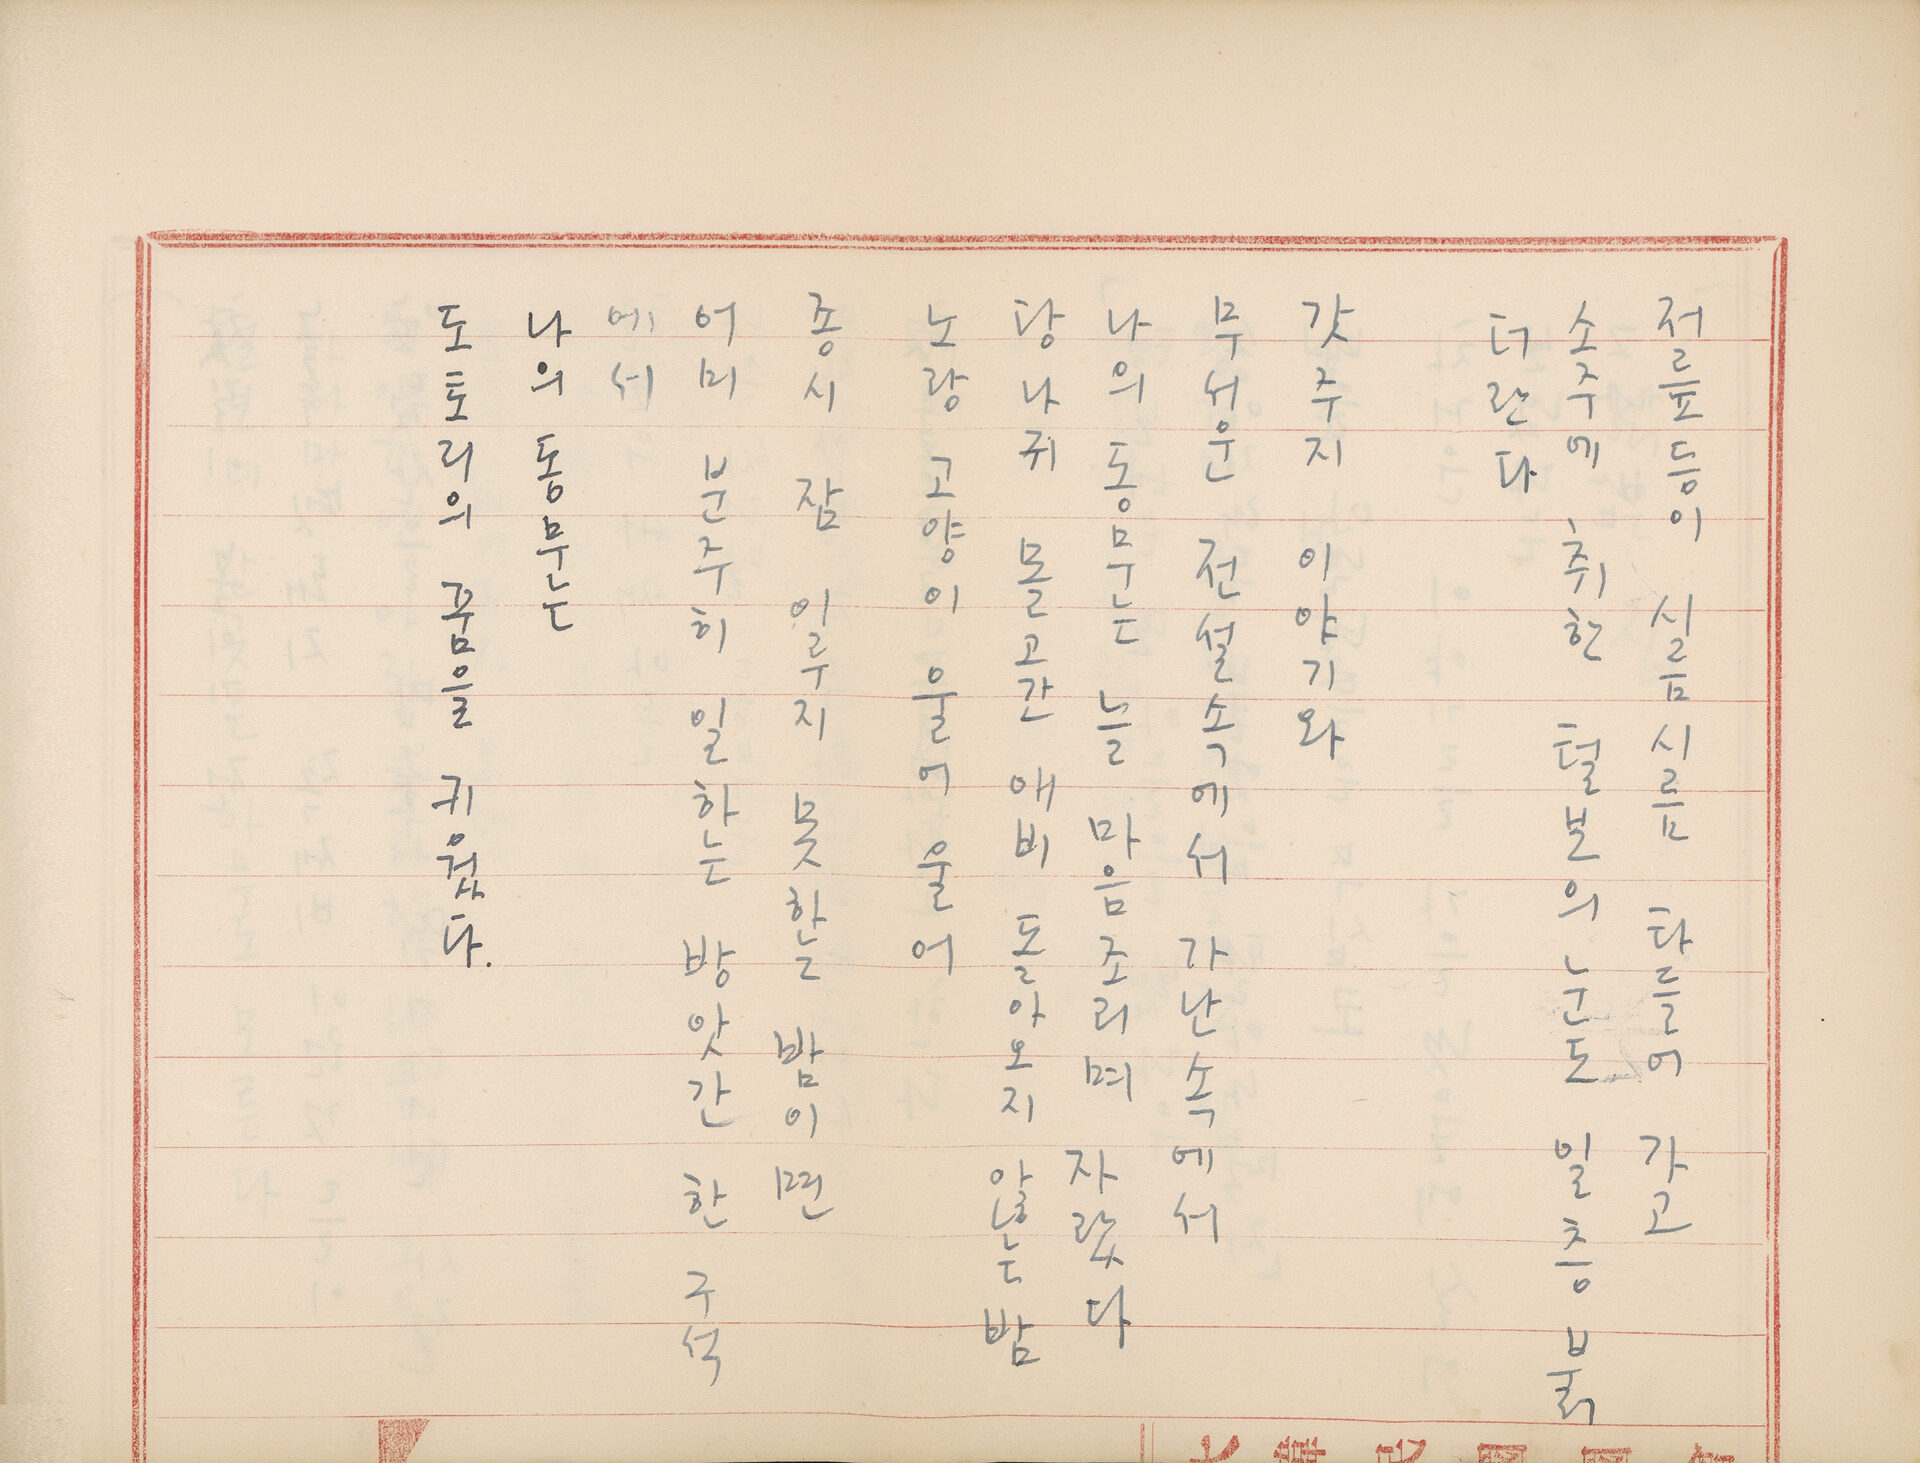 저릎등이 시름시름 타들어 가고
소주에 취한 털보의 눈도 일층 붉
더란다
갓주지 이야기와
무서운 전설속에서 가난속에서
나의 동무는 늘 마음조리며 자랐다
당나귀 몰고간 애비 돌아오지 않는 밤
노랑 고양이 울어 울어
종시 잠 이루지 못할 밤이면
어미 분주히 일하는 방앗간 한 구석
에서
나의 동무는
도토리의 꿈을 키웠다.